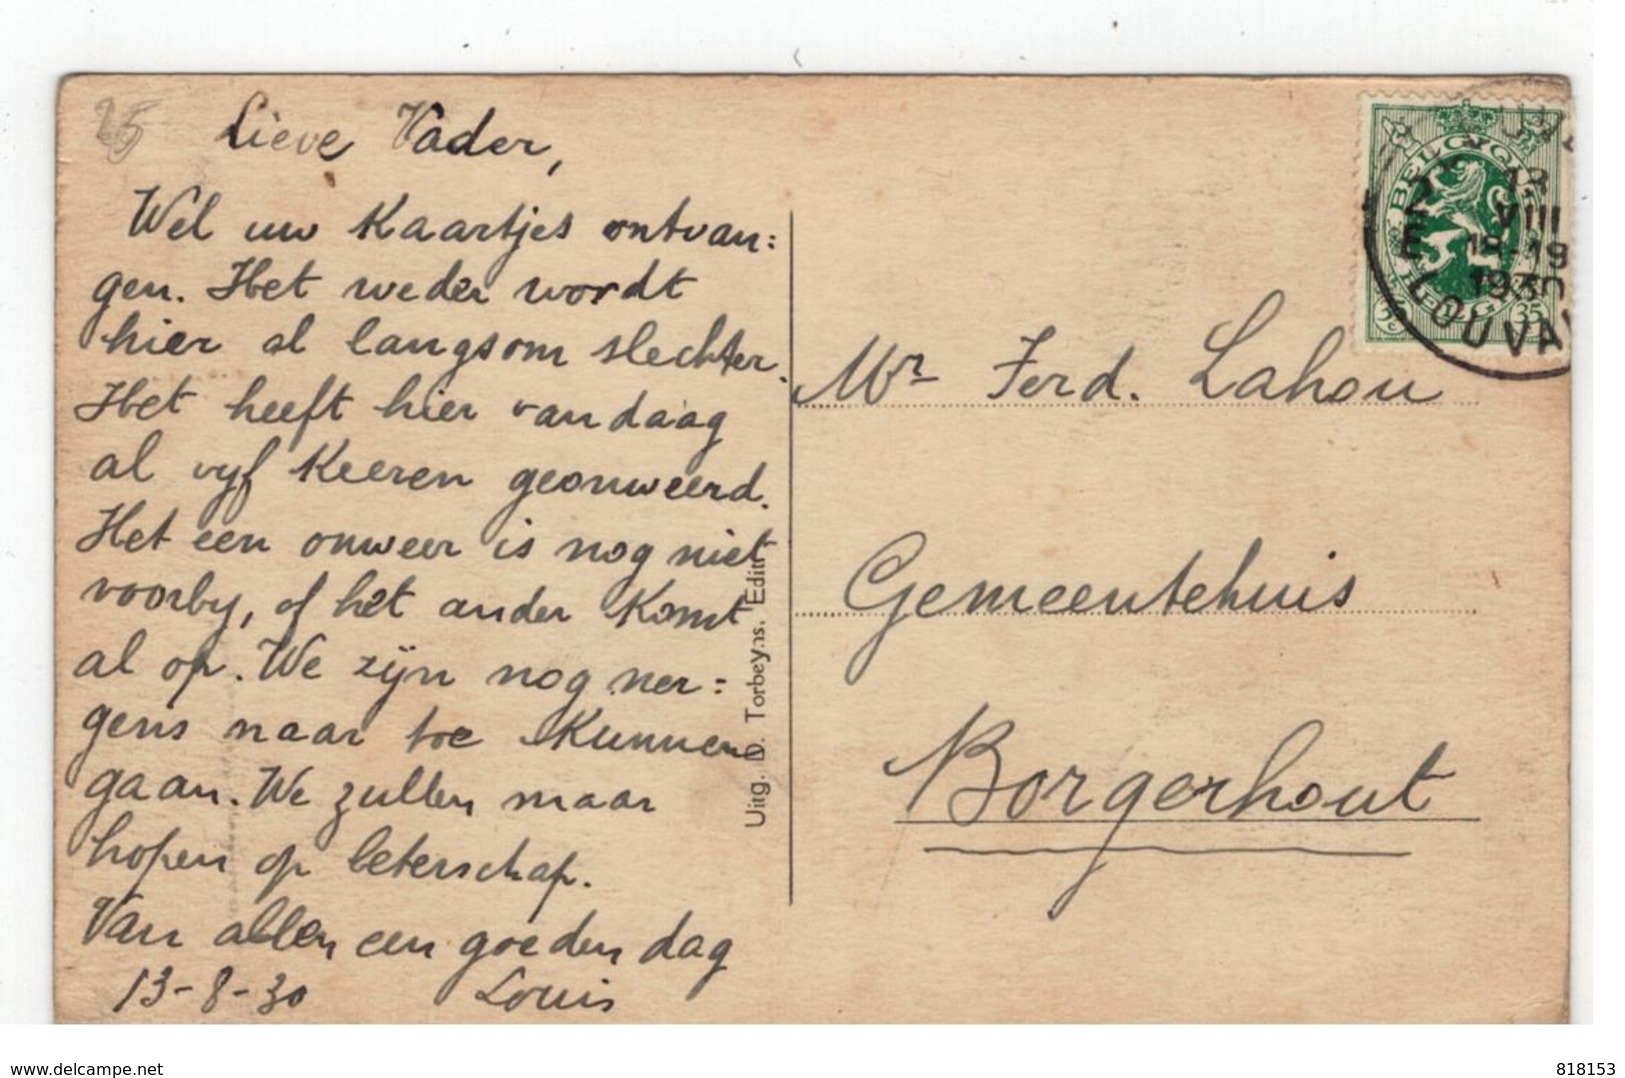 25
Lieve Vader,
Wel uw Kaartjes ontvan:
gen. Het weder wordt
hier al langsom slechter.
Het heeft hier vandaag
al vyf Keeren geonweerd.
Het een onweer is nog niet
voorby, of het ander Komt
al op. We zijn nog ner:
gens naar toe Kunnen
gaan. We zullen maar
hopen op beterschap.
Van allen een goeden dag
13-8-30 Louis
Uitg. D. Torbeyns. Edit
BELGIQUE
BELGIË
35
13
VIII
18-19
1930
LOUVA
Mr Ferd. Lahou
Gemeentehuis
Borgerhout
www.delcampe.net
818153